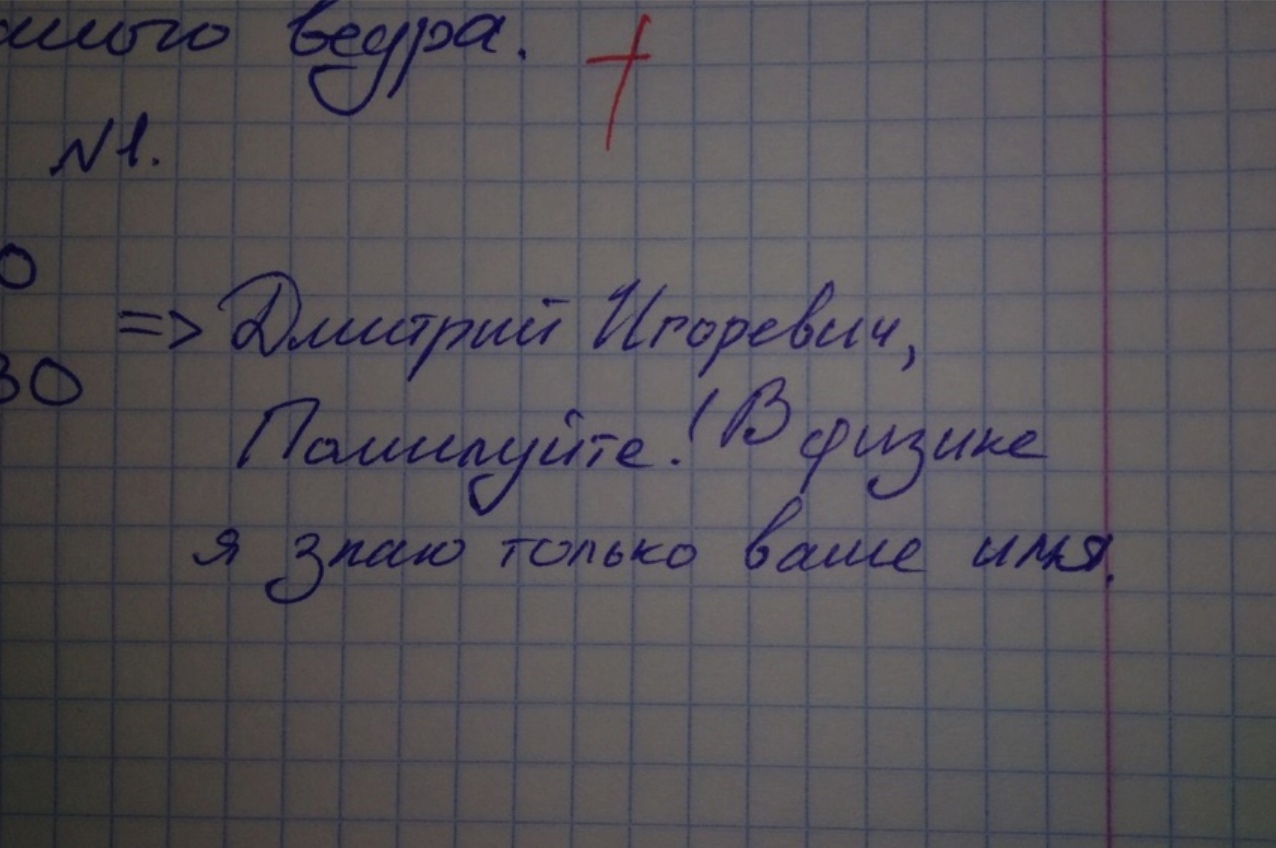 ведра.
№1.
0
=> Дмитрий Игоревич,
30
Помилуйте! В физике
я знаю только ваше имя.